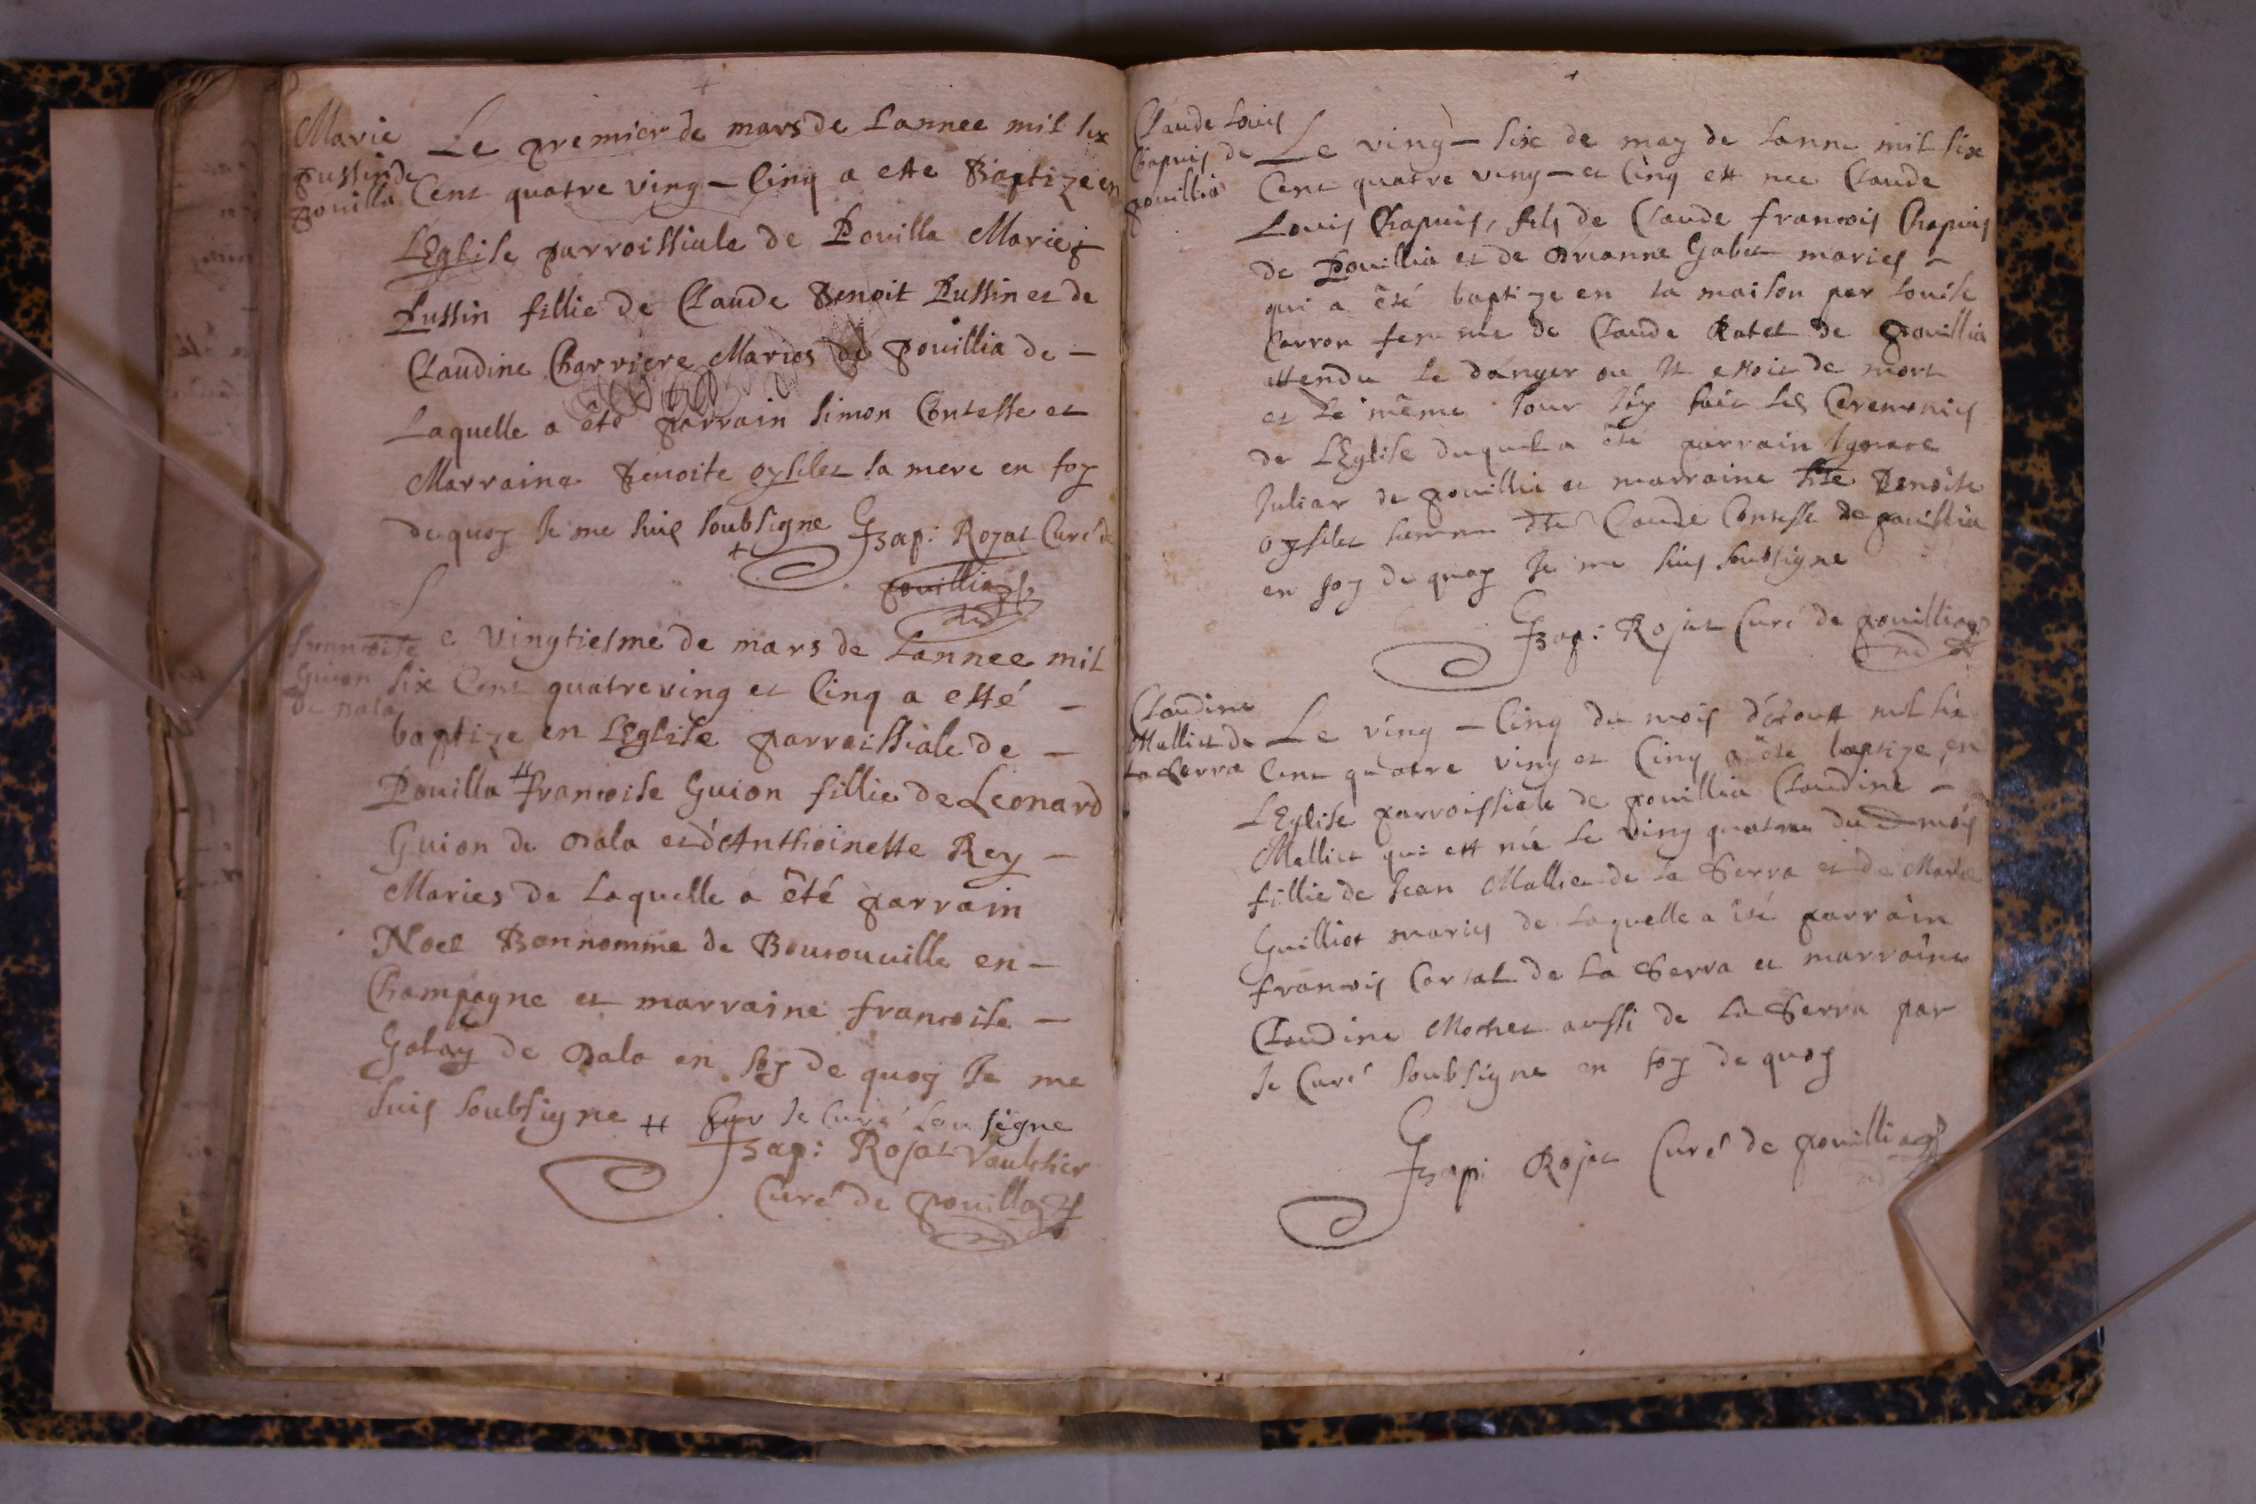 Marie
pussin de
pouilla
Le premier de mars de Lannee mil six
Cent quatre ving - Cinq a este Baptize en
LEglise parroissiale de Pouilla Marie
Pussin fillie de Claude Benoit Pussin et de
Claudine Charriere Maries de pouillia de -
Laquelle a êté parrain simon Contesse et
Marraine Benoite oyselet la mere en foy
de quoy Je me suis soubsigne Rojat Curé de
pouillia
francoise
Guion
de Dala
Le vingtiesme de mars de Lannee mil
six Cent quatreving et Cinq a esté -
baptize en LEglise parroissiale de -
Pouilla # francoise Guion fillie de Leonard
Guion de Dala et d'Anthoinette Rey -
Maries de Laquelle a êté parrain
Noel Bonnomme de en -
Champagne et marraine francoise -
Golay de Dala en foy de quoy Je me
suis soubsigne # par le Curé sousigne
Rojat vaulchier
Curé de pouilla
Claude Louis
Chapuis de
pouillia
Le ving - six de may de Lanne mil six
Cent quatre ving - et Cinq est nee Claude
Louis Chapuis, fils de Claude francois Chapuis
de Pouillia et de Gabet maries -
qui a êté baptize en la maison par Louise
Carron femme de Claude Ratel de pouillia
attendu le danger ou Il estoit de mort
et le même Jour fait les Ceremonies
de LEglise duquel a êté parrain Ignace
Juliar de pouillia et marraine Benoite
oyselet Claude Contesse de pouillia
en foy de quoy Je me suis soubsigne
Rojat Curé de pouillia
Claudine
Malliet de
La Serra
Le ving - Cinq du mois d'Aoust mil six
Cent quatre ving et Cinq a été baptize en
LEglise parroissiale de pouillia Claudine -
Malliet qui est née le ving quatre du mois
fillie de Jean Malliet de La Serra et de Marie
Guilliot maries de Laquelle a êté parrain
francois de La Serra et marraine
Claudine Mochet aussi de La Serra par
le Curé soubsigne en foy de quoy
Rojat Curé de pouillia